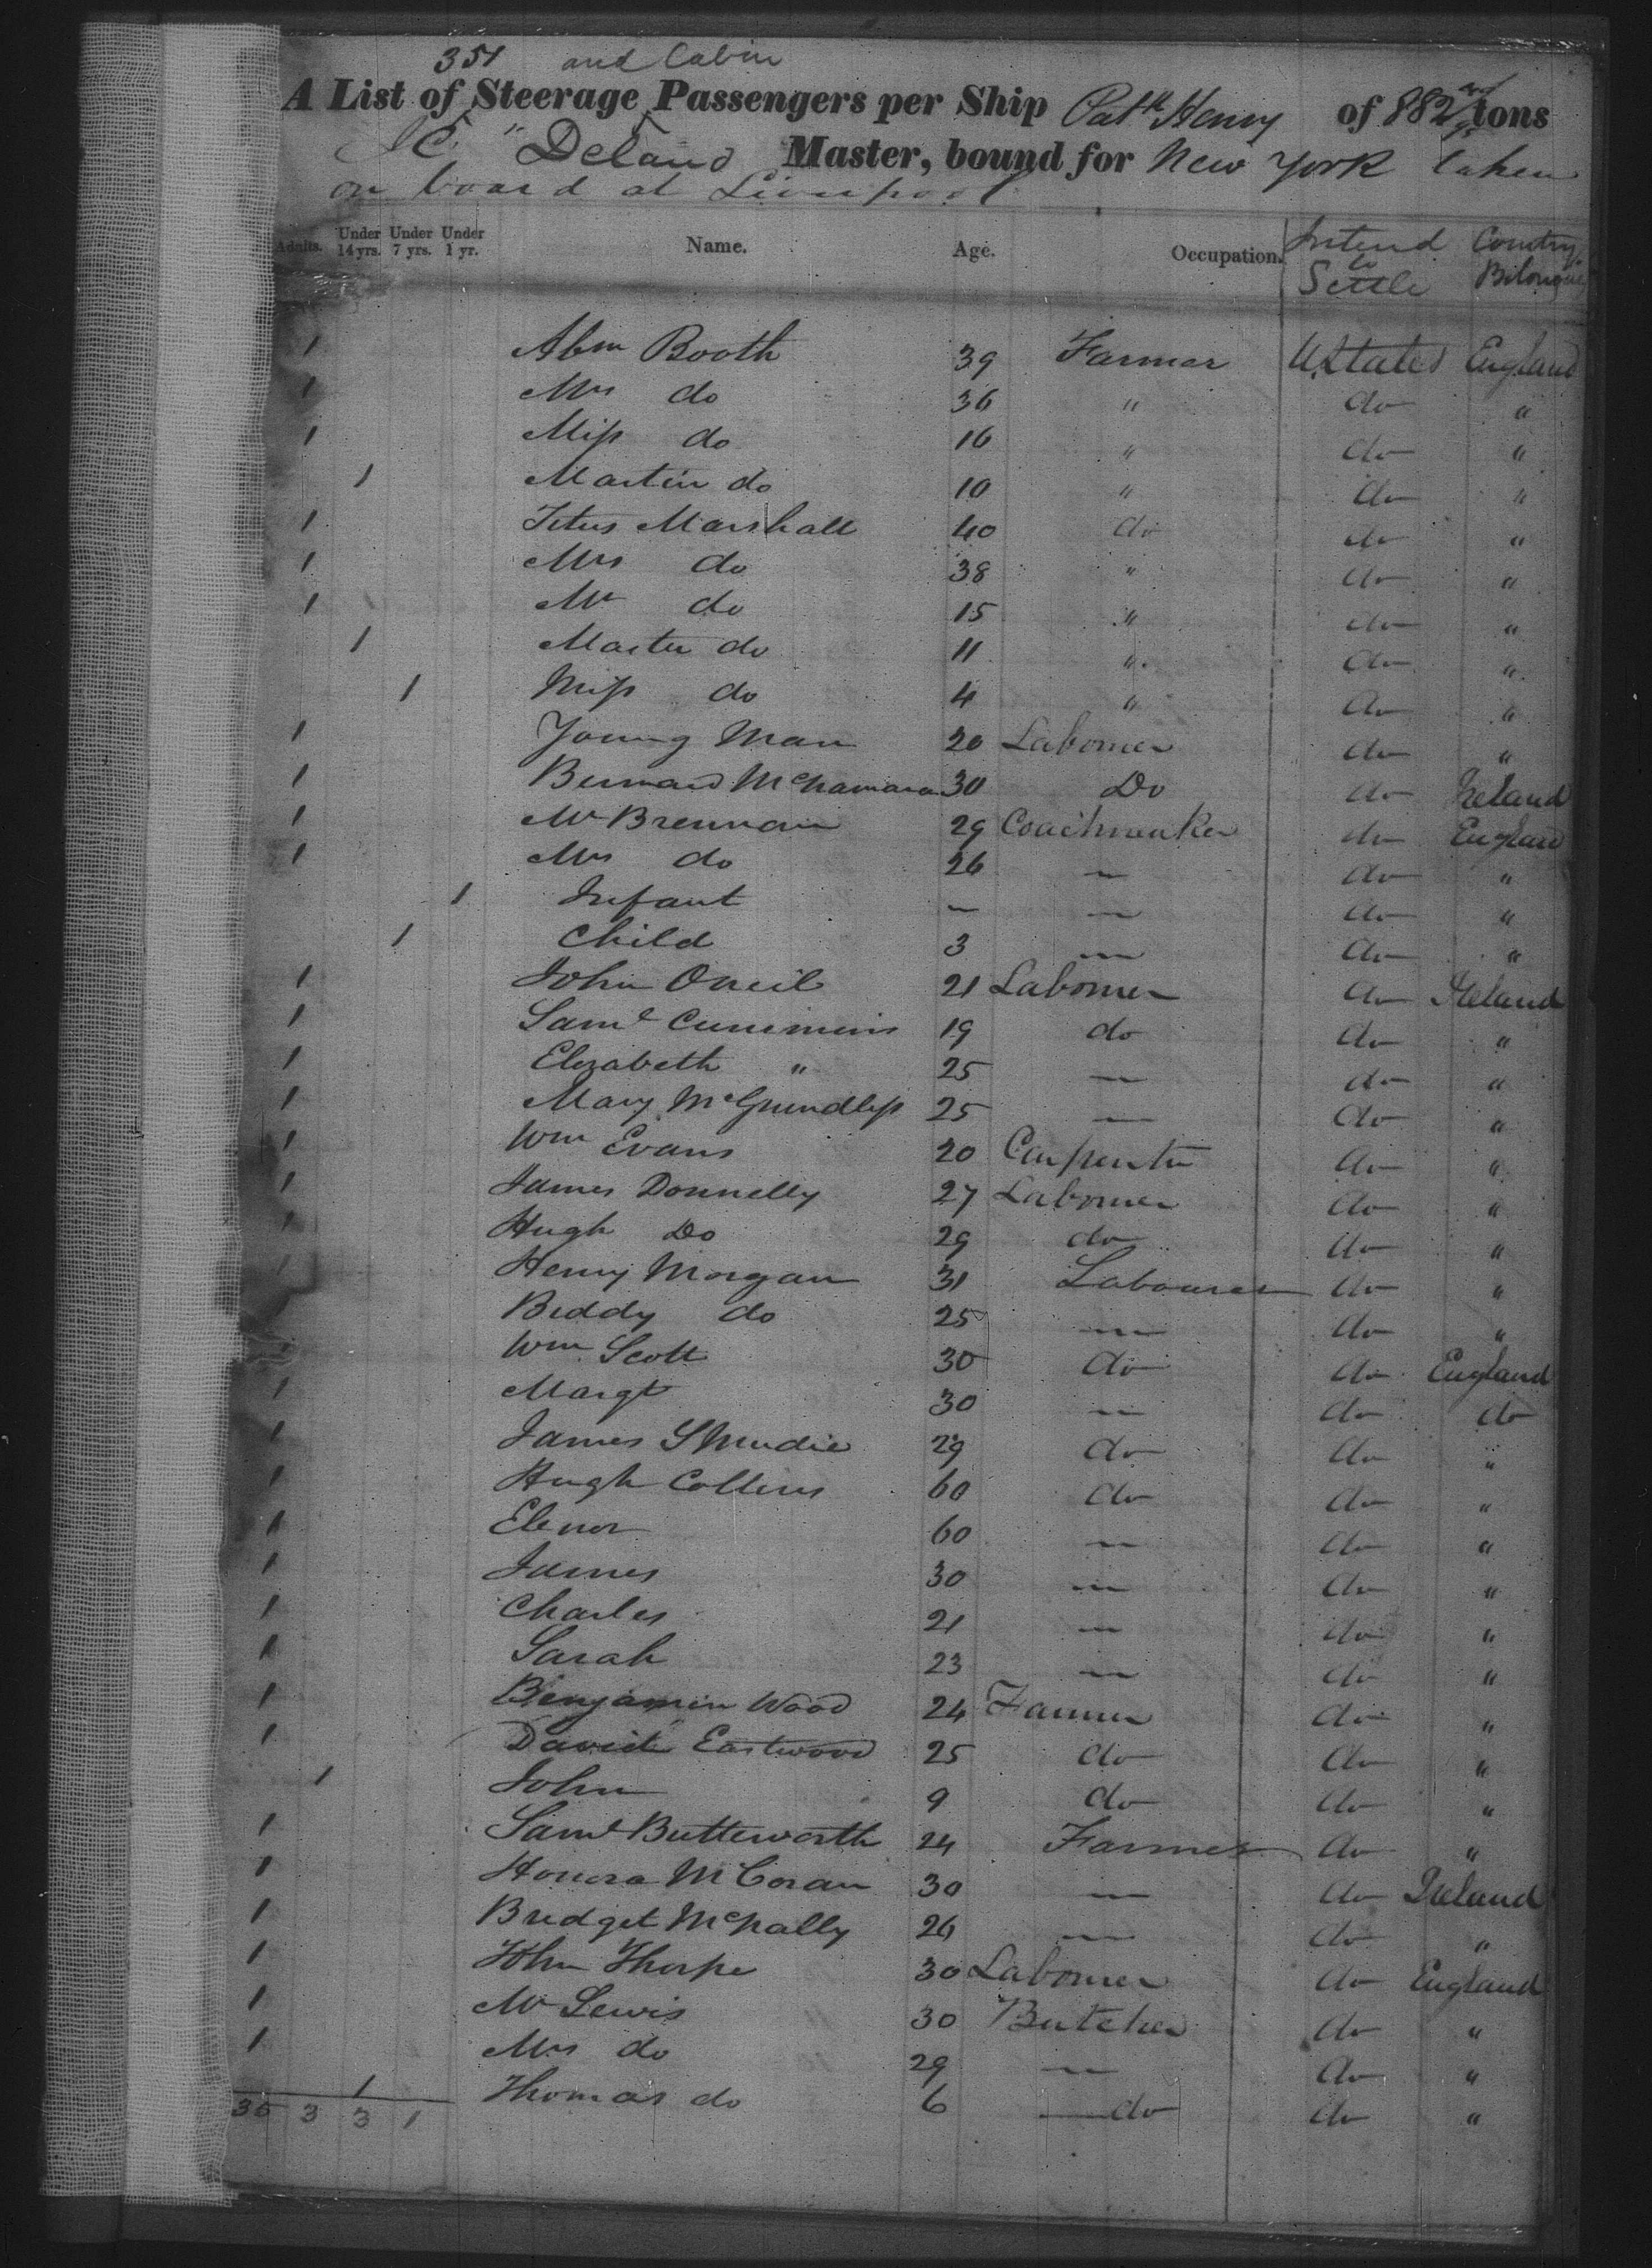 351 and Cabin
A List of Steerage Passengers per Ship Patk Henry of 882 tons
J C Delano Master, bound for New York taken
on board at Liverpool
Adults. Under 14 yrs. Under 7 yrs. Under 1 yr. Name. Age. Occupation. Intend to Settle Country Belonging
1 Abm Booth 39 Farmer U. States England
1 Mrs do 36 " do "
1 Miss do 16 " do "
1 Martin do 10 " do "
1 Titus Marshall 40 do do "
1 Mrs do 38 " do "
1 Mr do 15 " do "
1 Master do 11 " do "
1 Miss do 4 " do "
1 Young Man 20 Labourer do "
1 Bernard McNamara 30 Do do Ireland
1 Mr Brennan 29 Coachmaker do England
1 Mrs do 26 — do "
1 Infant — — do "
1 Child 3 — do "
1 John Oneil 21 Labourer do Ireland
1 Saml Cummins 19 do do "
1 Elizabeth " 25 — do "
1 Mary 25 — do "
1 Wm Evans 20 Carpenter do "
1 James Donnelly 27 Labourer do "
1 Hugh Do 29 do do "
1 Henry Morgan 31 Labourer do "
Biddy do 25 — do "
Wm Scott 30 do do England
1 Margt 30 — do do
1 James 29 do do "
1 Hugh Collins 60 do do "
1 Elenor 60 — do "
1 James 30 — do "
1 Charles 21 — do "
1 Sarah 23 — do "
1 Benjamin Wood 24 Farmer do "
1 David Eastwood 25 do do "
1 John 9 do do "
1 Saml Butterworth 24 Farmer do "
1 Honora McCoran 30 — do Ireland
1 Bridget McNally 26 — do "
1 John Thorpe 30 Labourer do England
1 Mr Lewis 30 Butcher do "
1 Mrs do 29 — do "
1 Thomas do 6 — do do "
35 3 3 1